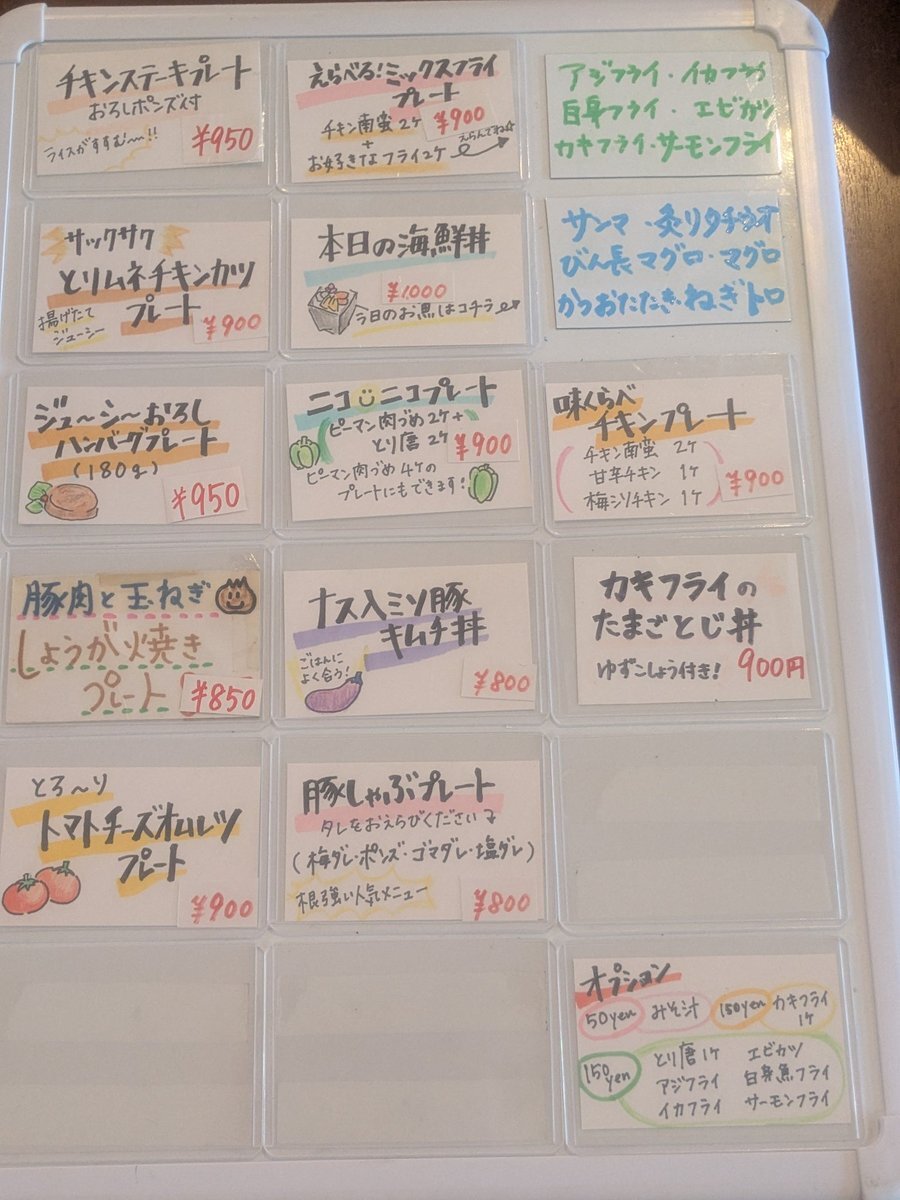 チキンステーキプレート
おろしポンズ付
ライスがすすむ〜!!
¥950
えらべる!ミックスフライ
プレート
チキン南蛮2ケ ¥900
+
えらんでね☆
お好きなフライ2ケ
アジフライ・イカフライ
白身フライ・エビカツ
カキフライ・サーモンフライ
サックサク
とりムネチキンカツ
プレート
揚げたて
ジューシー
¥900
本日の海鮮丼
¥1000
今日のお魚はコチラ
サンマ・炙りタチウオ
びん長マグロ・マグロ
かつおたたき・ねぎトロ
ジュ〜シ〜おろし
ハンバーグプレート
(180g)
¥950
ニコニコプレート
ピーマン肉づめ2ケ+
とり唐2ケ
¥900
ピーマン肉づめ4ケの
プレートにもできます!
味くらべ
チキンプレート
チキン南蛮 2ケ
甘辛チキン 1ケ
梅シソチキン 1ケ
¥900
豚肉と玉ねぎ
しょうが焼き
プレート
¥850
ナス入ミソ豚
キムチ丼
ごはんに
よく合う!
¥800
カキフライの
たまごとじ丼
ゆずこしょう付き! 900円
とろ〜り
トマトチーズオムレツ
プレート
¥900
豚しゃぶプレート
タレをおえらびください
(梅ダレ・ポンズ・ゴマダレ・塩ダレ)
根強い人気メニュー
¥800
オプション
50yen みそ汁 150yen カキフライ
1ケ
150
yen
とり唐1ケ エビカツ
アジフライ 白身魚フライ
イカフライ サーモンフライ